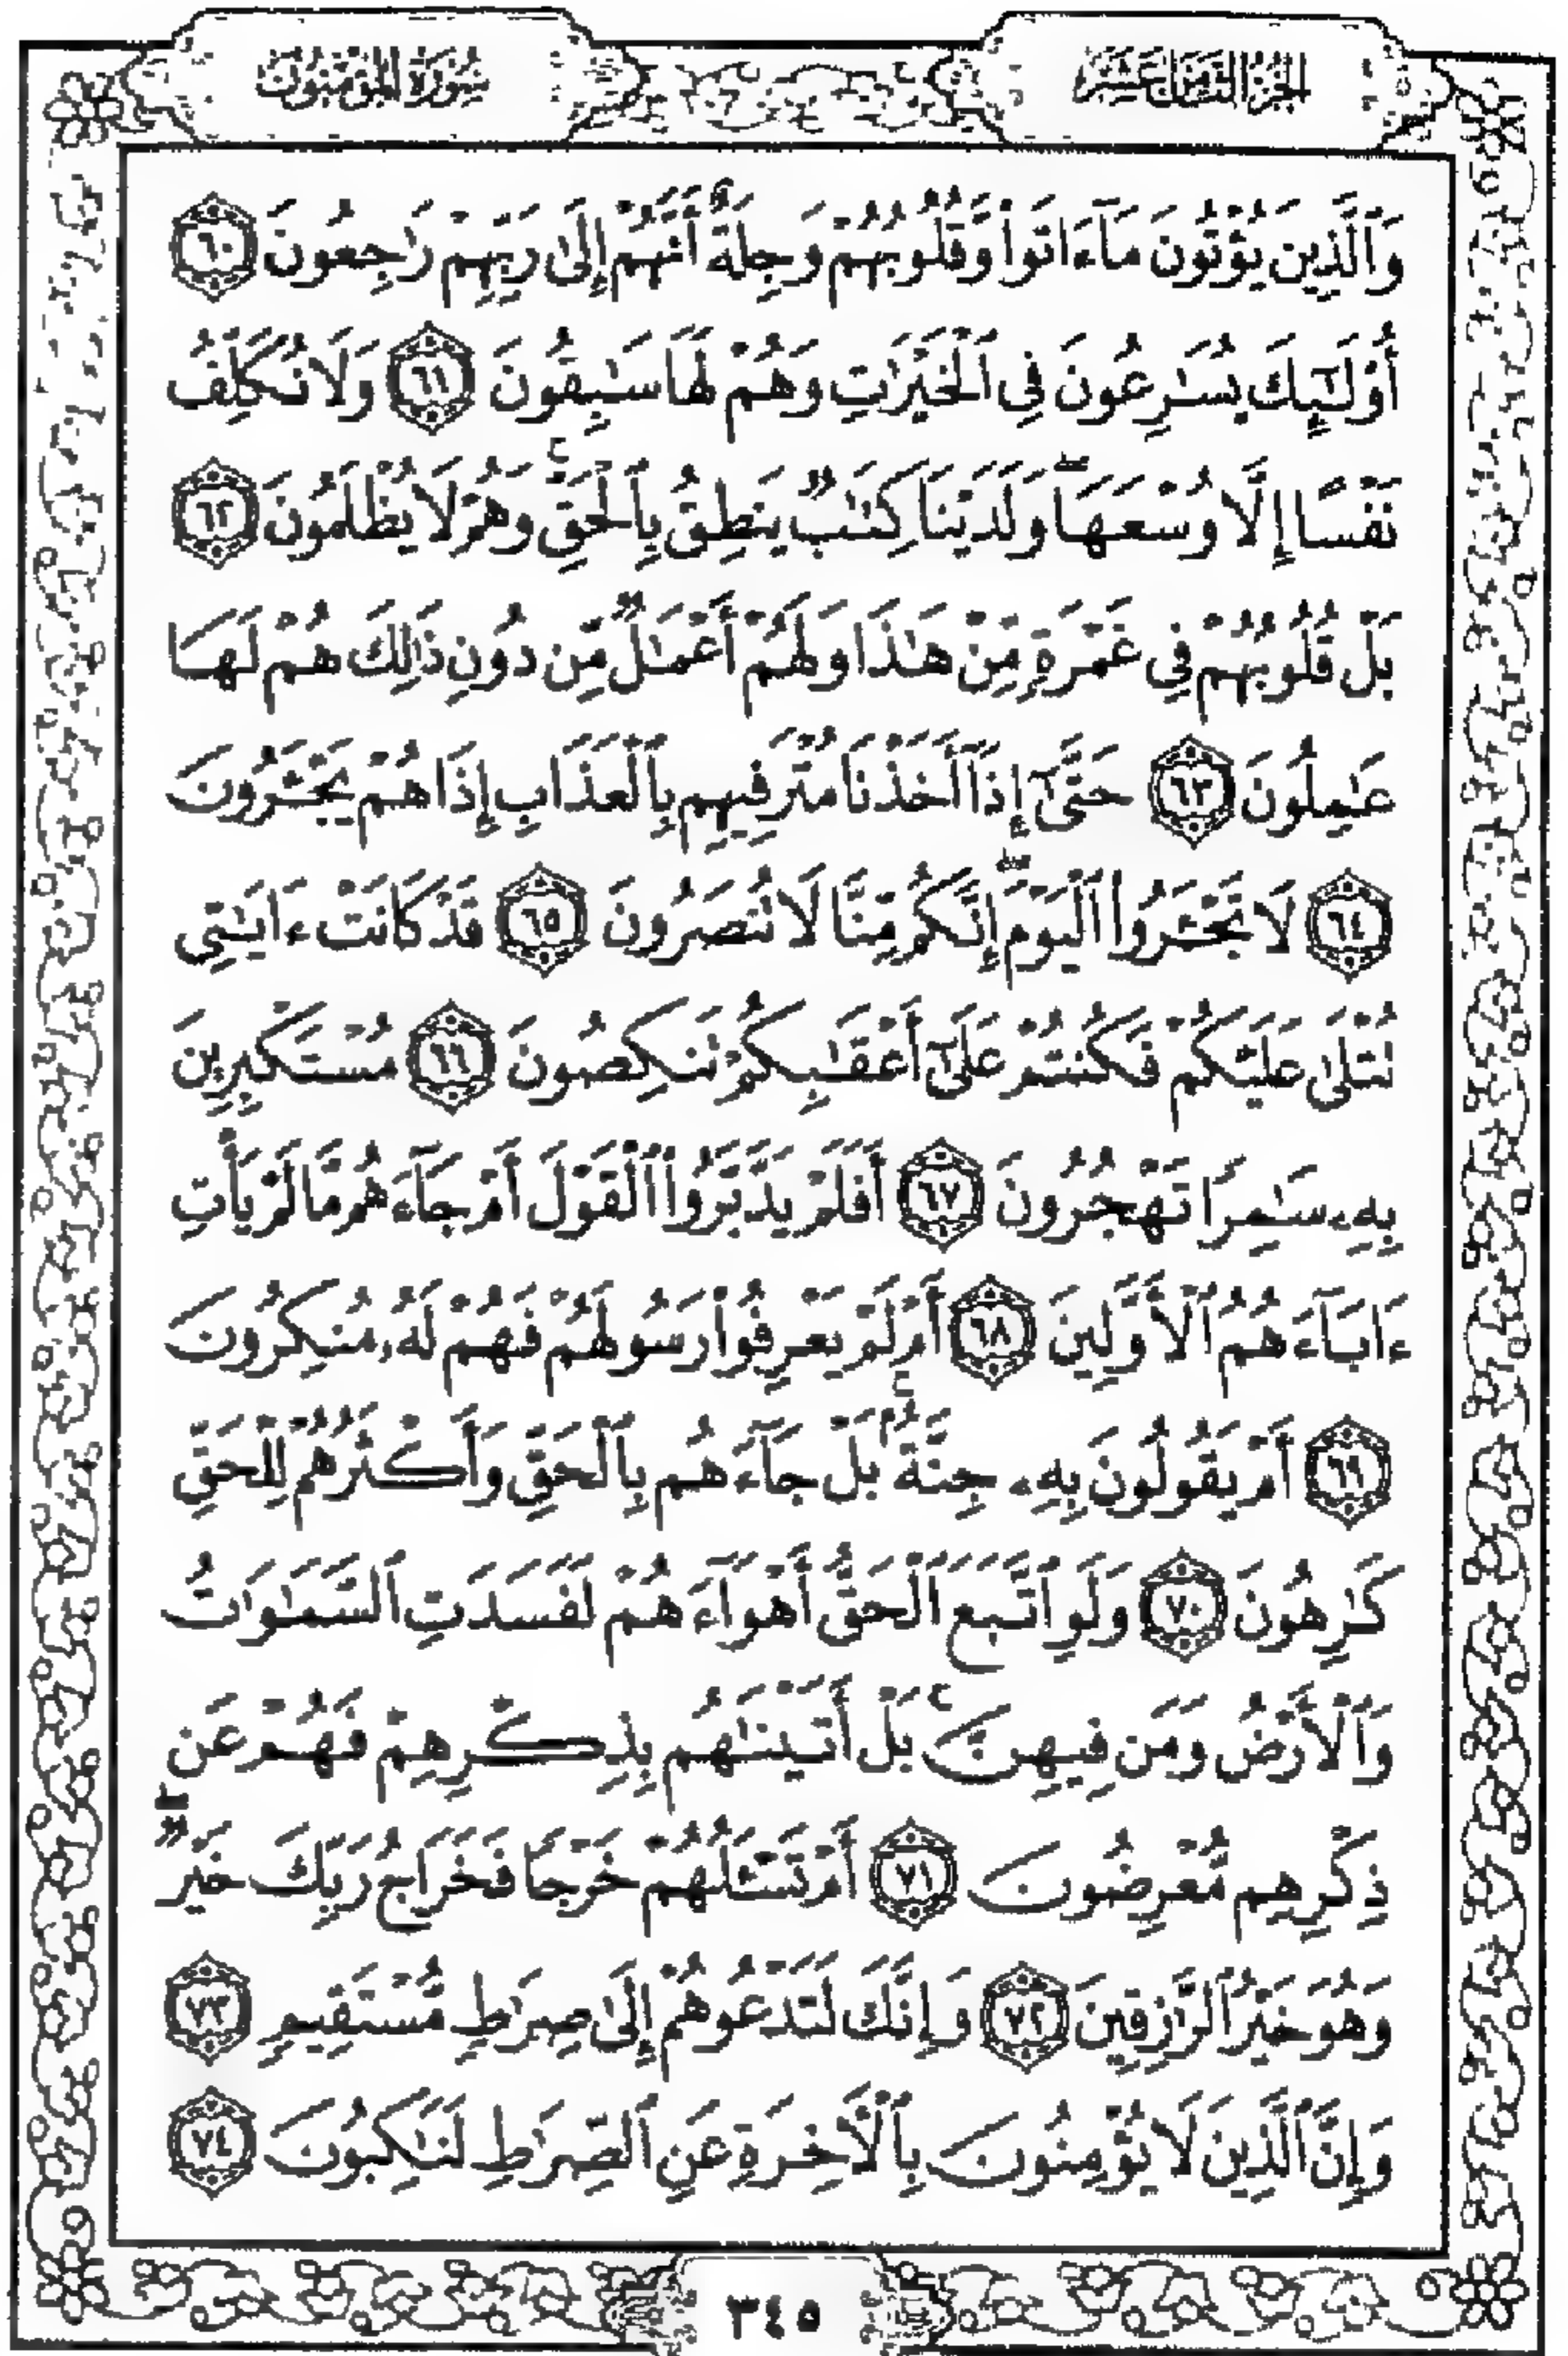 الجزء الثامن عشر
سورة المؤمنون
وَٱلَّذِينَ يُؤْتُونَ مَآ ءَاتَوا۟ وَّقُلُوبُهُمْ وَجِلَةٌ أَنَّهُمْ إِلَىٰ رَبِّهِمْ رَٰجِعُونَ ٦٠
أُو۟لَـٰٓئِكَ يُسَـٰرِعُونَ فِى ٱلْخَيْرَٰتِ وَهُمْ لَهَا سَـٰبِقُونَ ٦١ وَلَا نُكَلِّفُ
نَفْسًا إِلَّا وُسْعَهَا ۖ وَلَدَيْنَا كِتَـٰبٌ يَنطِقُ بِٱلْحَقِّ ۚ وَهُمْ لَا يُظْلَمُونَ ٦٢
بَلْ قُلُوبُهُمْ فِى غَمْرَةٍ مِّنْ هَـٰذَا وَلَهُمْ أَعْمَـٰلٌ مِّن دُونِ ذَٰلِكَ هُمْ لَهَا
عَـٰمِلُونَ ٦٣ حَتَّىٰٓ إِذَآ أَخَذْنَا مُتْرَفِيهِم بِٱلْعَذَابِ إِذَا هُمْ يَجْـَٔرُونَ
٦٤ لَا تَجْـَٔرُوا۟ ٱلْيَوْمَ ۖ إِنَّكُم مِّنَّا لَا تُنصَرُونَ ٦٥ قَدْ كَانَتْ ءَايَـٰتِى
تُتْلَىٰ عَلَيْكُمْ فَكُنتُمْ عَلَىٰٓ أَعْقَـٰبِكُمْ تَنكِصُونَ ٦٦ مُسْتَكْبِرِينَ
بِهِۦ سَـٰمِرًا تَهْجُرُونَ ٦٧ أَفَلَمْ يَدَّبَّرُوا۟ ٱلْقَوْلَ أَمْ جَآءَهُم مَّا لَمْ يَأْتِ
ءَابَآءَهُمُ ٱلْأَوَّلِينَ ٦٨ أَمْ لَمْ يَعْرِفُوا۟ رَسُولَهُمْ فَهُمْ لَهُۥ مُنكِرُونَ
٦٩ أَمْ يَقُولُونَ بِهِۦ جِنَّةٌۢ ۚ بَلْ جَآءَهُم بِٱلْحَقِّ وَأَكْثَرُهُمْ لِلْحَقِّ
كَـٰرِهُونَ ٧٠ وَلَوِ ٱتَّبَعَ ٱلْحَقُّ أَهْوَآءَهُمْ لَفَسَدَتِ ٱلسَّمَـٰوَٰتُ
وَٱلْأَرْضُ وَمَن فِيهِنَّ ۚ بَلْ أَتَيْنَـٰهُم بِذِكْرِهِمْ فَهُمْ عَن
ذِكْرِهِم مُّعْرِضُونَ ٧١ أَمْ تَسْـَٔلُهُمْ خَرْجًا فَخَرَاجُ رَبِّكَ خَيْرٌ ۖ
وَهُوَ خَيْرُ ٱلرَّٰزِقِينَ ٧٢ وَإِنَّكَ لَتَدْعُوهُمْ إِلَىٰ صِرَٰطٍ مُّسْتَقِيمٍ ٧٣
وَإِنَّ ٱلَّذِينَ لَا يُؤْمِنُونَ بِٱلْـَٔاخِرَةِ عَنِ ٱلصِّرَٰطِ لَنَـٰكِبُونَ ٧٤
٣٤٥